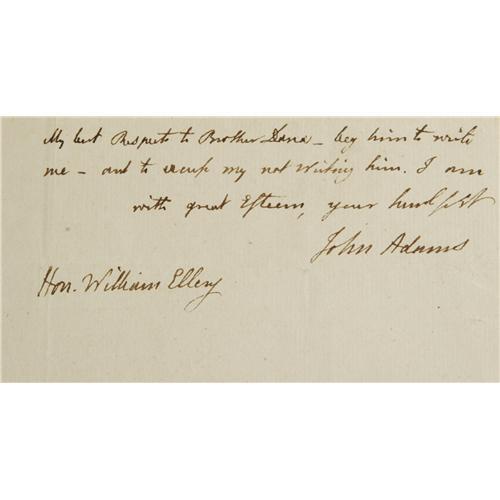 My best Respects to Brother Dana – beg him to write
me – and to excuse my not Writing him. I am
with great Esteem, your humb sert
John Adams
Hon. William Ellery